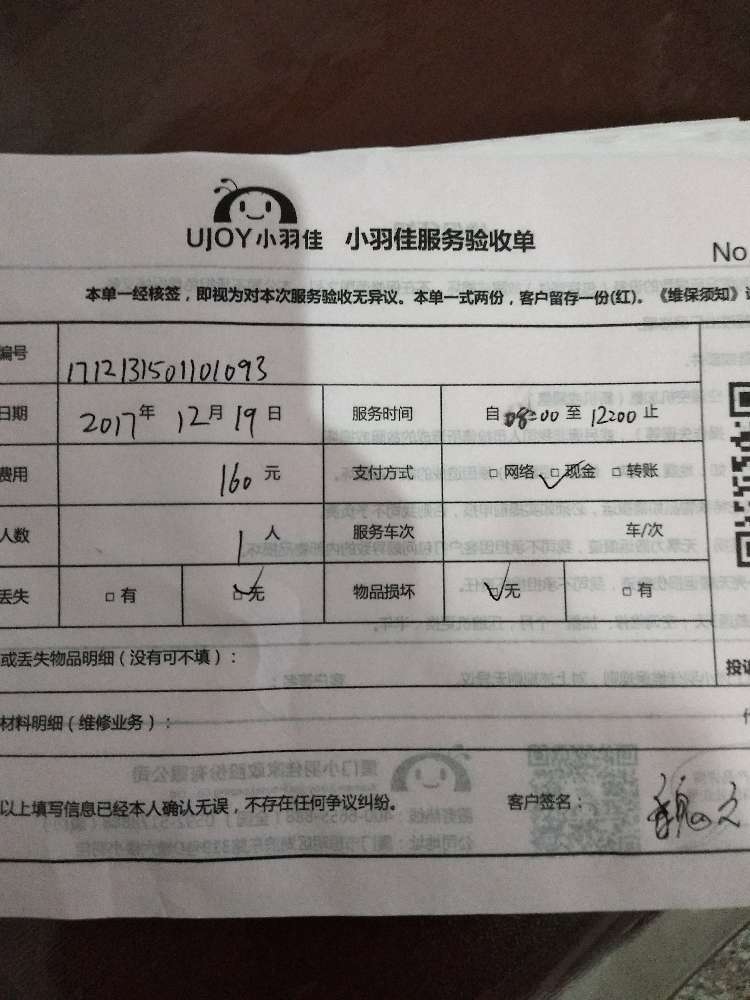 UJOY小羽佳 小羽佳服务验收单
No
本单一经核签，即视为对本次服务验收无异议。本单一式两份，客户留存一份(红)。《维保须知》
编号 1712131501101093
日期 2017年 12月 19日 服务时间 自 08:00 至 12:00 止
费用 160 元 支付方式 □ 网络 □ 现金 □ 转账
人数 1 人 服务车次 车/次
丢失 □ 有 □ 无 物品损坏 □ 无 □ 有
或丢失物品明细（没有可不填）：
投诉
材料明细（维修业务）：
以上填写信息已经本人确认无误，不存在任何争议纠纷。 客户签名：